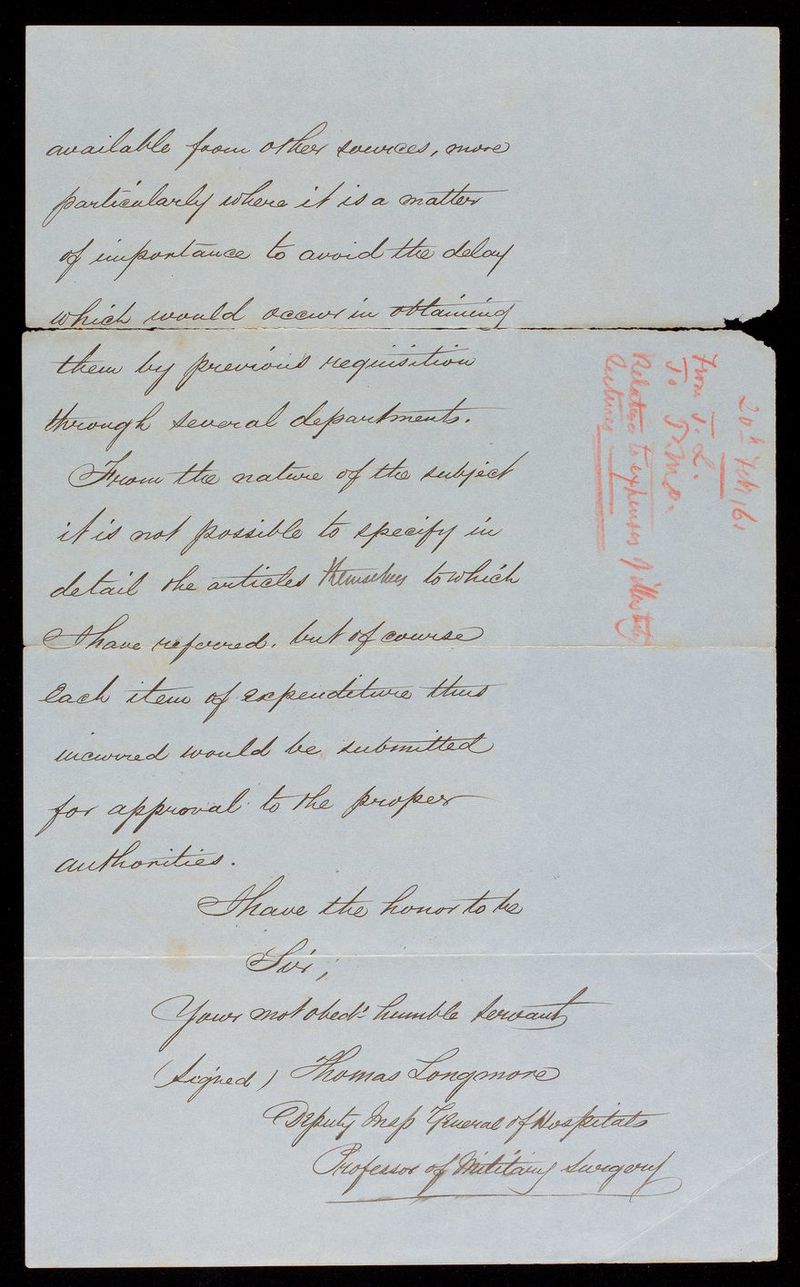 available from other sources, more
particularly where it is a matter
of importance to avoid the delay
which would occur in obtaining
them by previous requisition
through several departments.
From the nature of the subject
it is not possible to specify in
detail the articles themselves to which
I have referred. but of course
Each item of expenditure thus
incurred would be submitted
for approval to the proper
authorities.
I have the honor to be
Sir,
Your most obedt humble servant
(Signed) Thomas Longmore
Deputy Insp General of Hospitals
Professor of Military Surgery
20th Feb /61
From T. L.
To P.M.O.
Relative to expenses of
Lectures